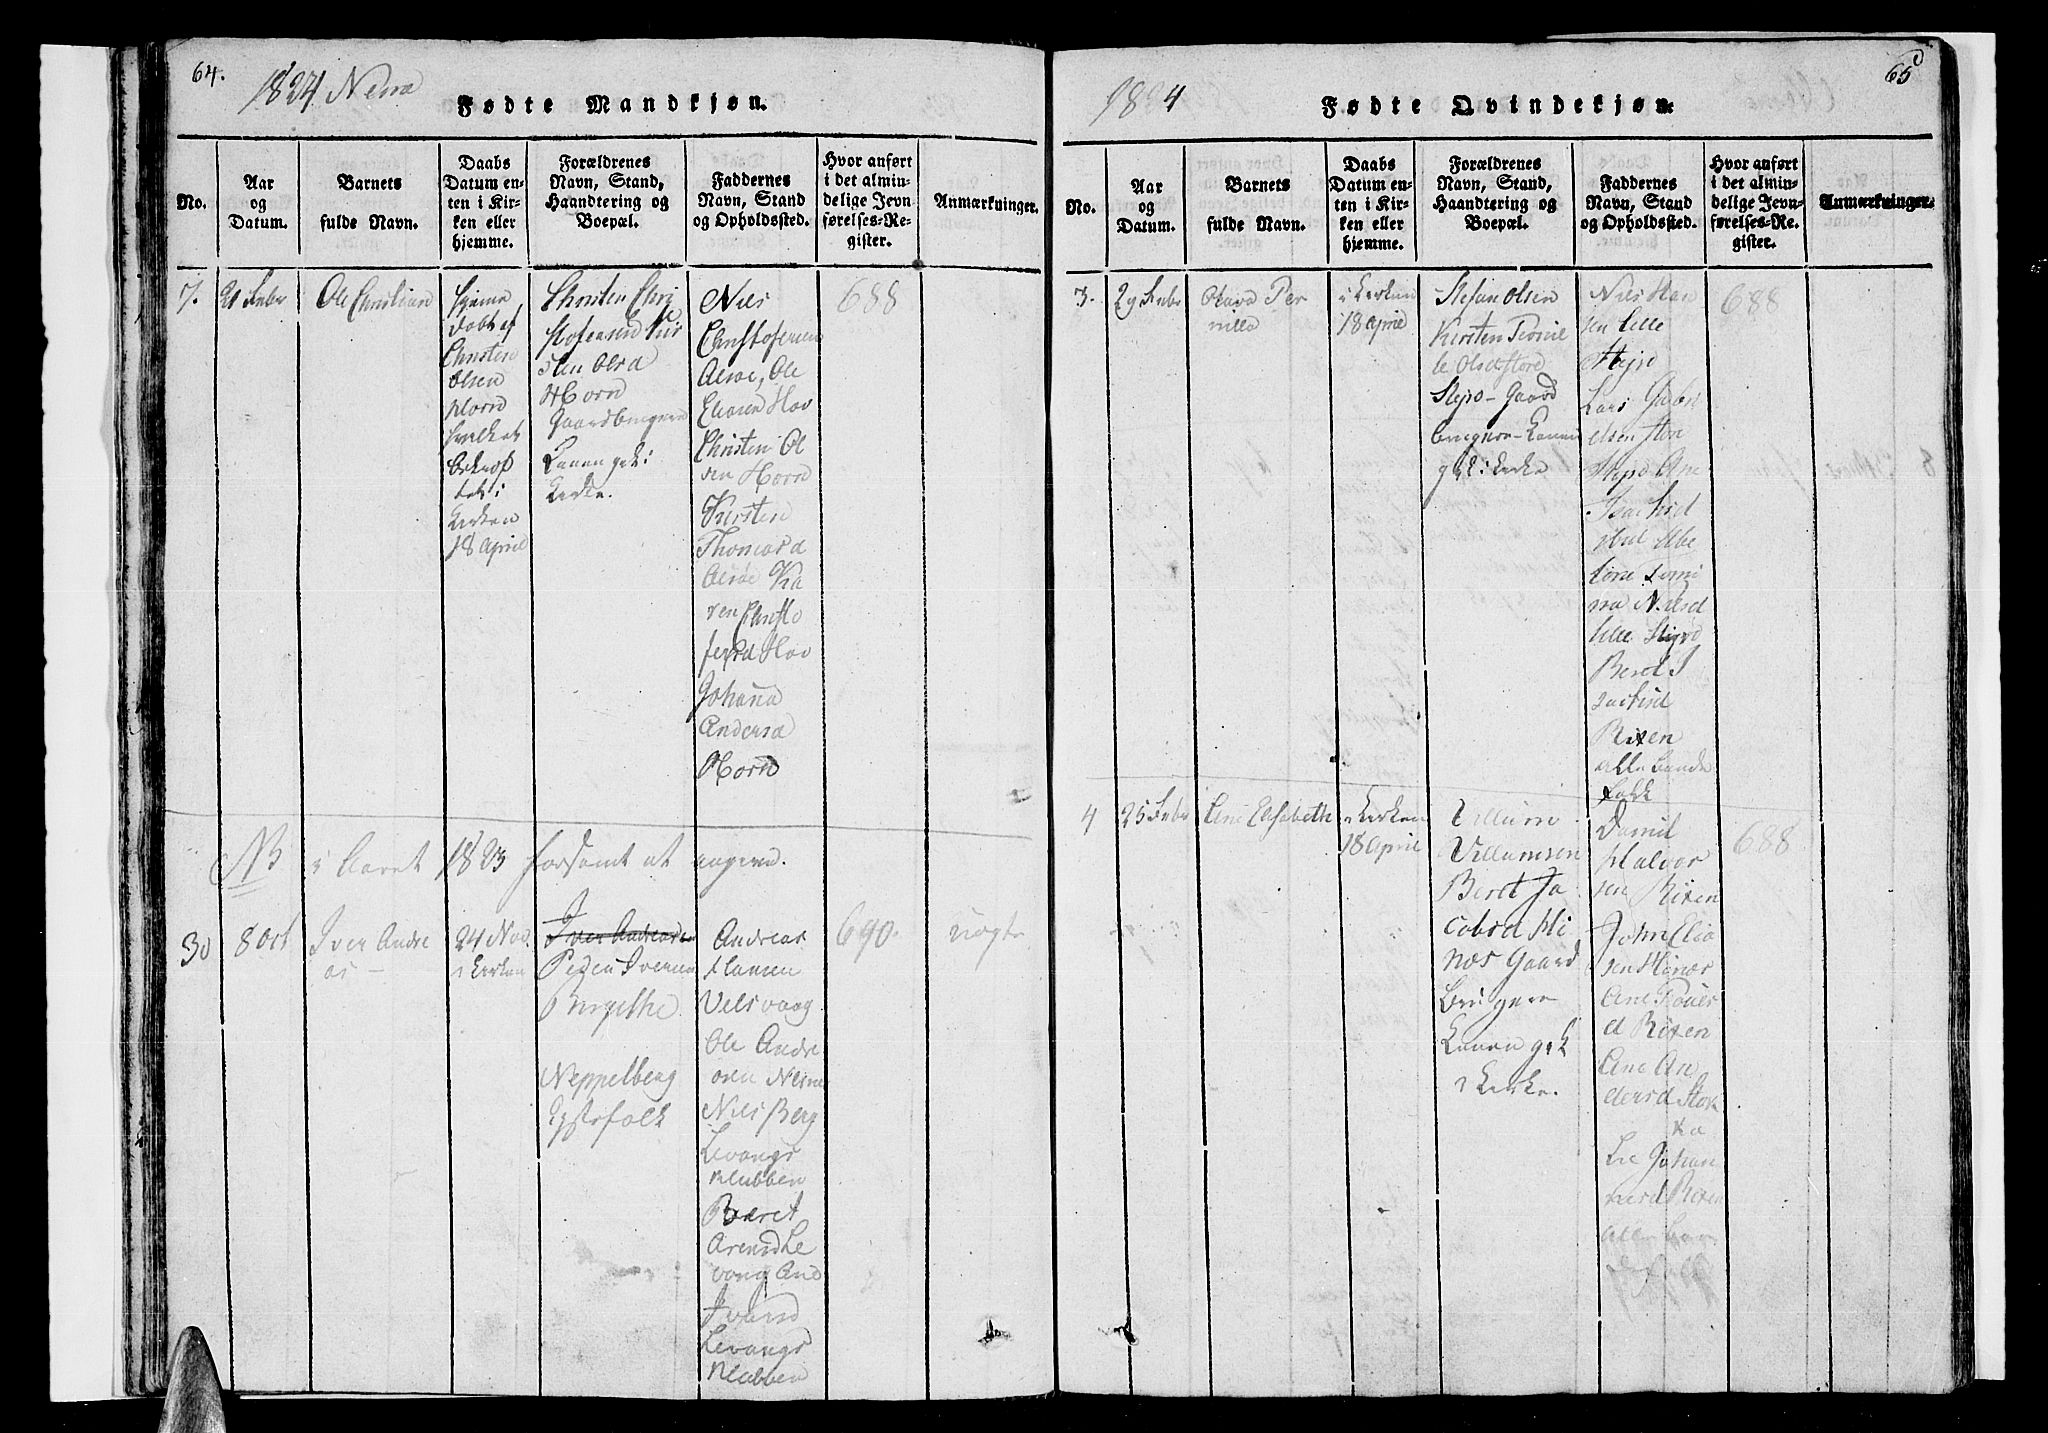 64.
1824 Nesna
Fødte Mandkjøn.
No.
Aar
og
Datum.
Barnets
fulde Navn.
Daabs
Datum en-
ten i Kir-
ken eller
hjemme.
Forældrenes
Navn, Stand,
Haandtering og
Boepæl.
Faddernes
Navn, Stand
og Opholdssted.
Hvor anført
i det almin-
delige Jevn-
førelses-Re-
gister.
Anmærkninger.
7.
21 Febr
Ole Christian
hjeme
døbt af
Christen
Olsen
Horn
hvilket
i
Kirken
18 April
Christen Chri
stofersen
sten Olsd
Horn
Gaardbrugere
Konen gik i
Kirke.
Niels
Christofersen
Alsøe, Ole
Eliasen Hov
Christen Ol
sen Horn
Kirsten
Thomasd
Alsøe Ka
ren Christo
fersd Hov
Johana
Andersd
Horn
688
NB i Aaret 1823 forsømt at anføre.
30
8 Oct
Iver Andre
as
24 Nov.
i Kirken
Iver Andreasen
Peder Iversen
Birgethe
Neppelberg
folk
Andreas
Hansen
Velsvaag
Ole Andre
asen Nesne
Niels Berg
Levangs
Klubben
Beret
Arensd Le
vang And
Iversd
Levangs
Klubben
690.
uægte
65
1824
Fødte Qvindekjøn.
No.
Aar
og
Datum.
Barnets
fulde Navn.
Daabs
Datum en-
ten i Kir-
ken eller
hjemme.
Forældrenes
Navn, Stand,
Haandtering og
Boepæl.
Faddernes
Navn, Stand
og Opholdssted.
Hvor anført
i det almin-
delige Jevn-
førelses-Re-
gister.
Anmærkninger.
3.
29 Febr
Olava Per
nilla
i Kirken
18 April
Stefan Olsen
Kirsten Pernil
le Olsd Store
Gaard
bruger - Konen
gik i Kirke
Niels Han
sen Lille
Lars Gabri
elsen Store
Ane
Isachsd
Niels d
Lille
Beret I
sachsd
Rixen
alle Bonde
folk
688
4
25 Febr
Ane Elisabeth
i Kirken
18 April
Villum
Villumsen
Beret Ja
cobsd Hi
næs Gaard
Brugere
Konen gik
i Kirke.
Daniel
Halvor
sen Rixen
John Elia
sen Hinæs
Ane Pouls
d Rixen
Ane An
dersd Stok
ka
Johan
nesd Rixen
688